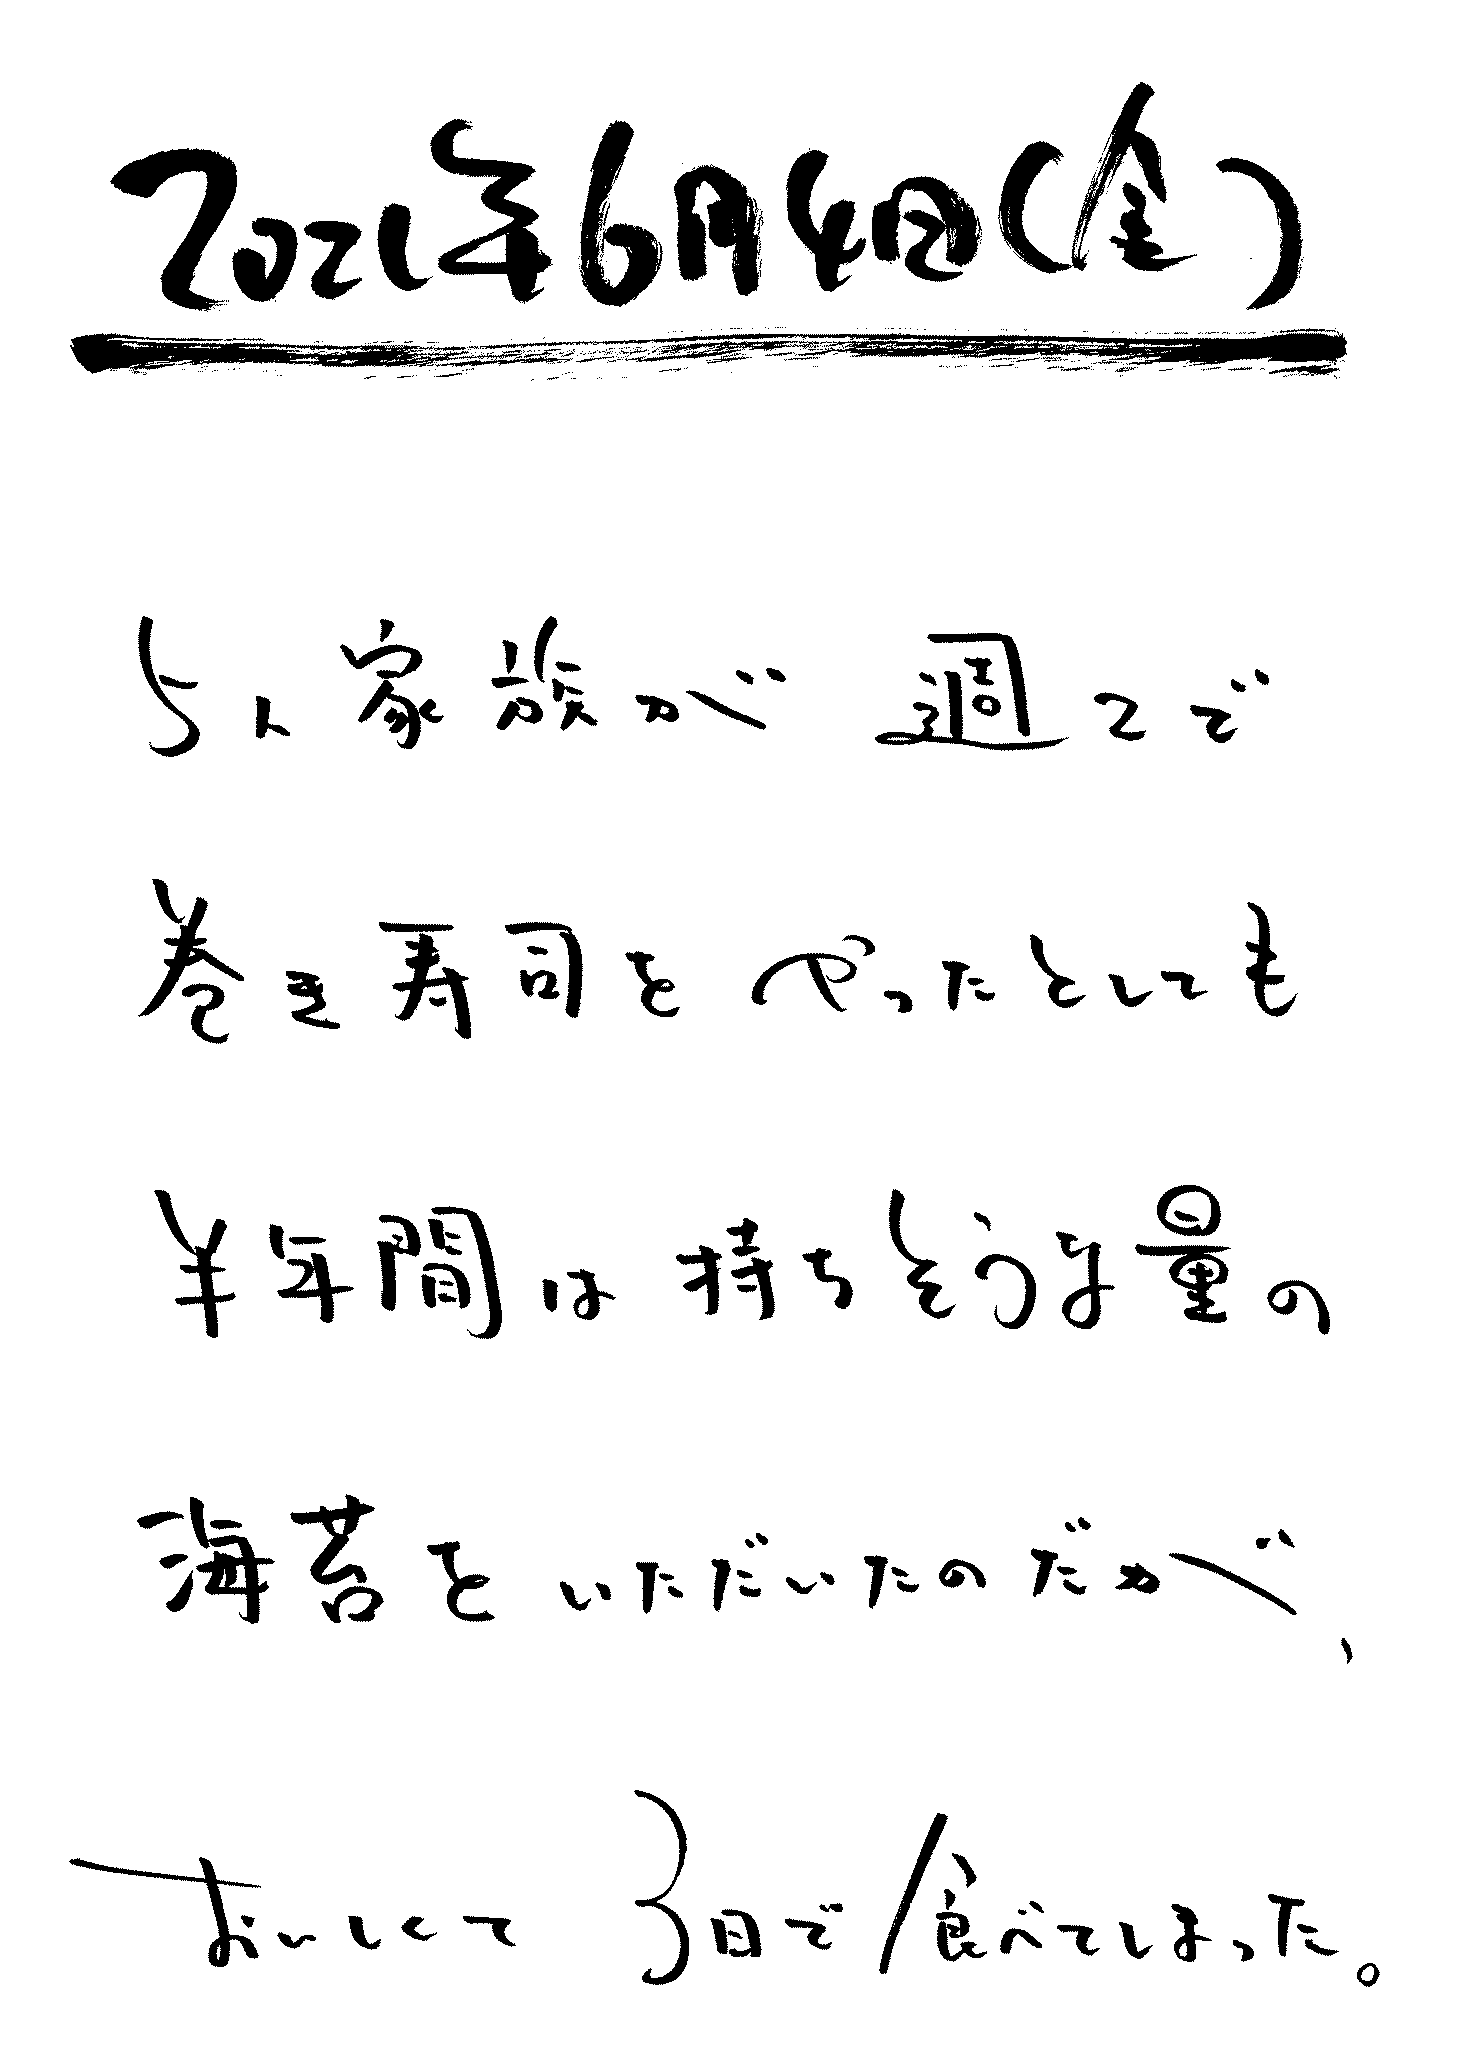 2021年6月4日(金)
5人家族が週2で
巻き寿司をやったとしても
半年間は持ちそうな量の
海苔をいただいたのだが、
おいしくて3日で食べてしまった。